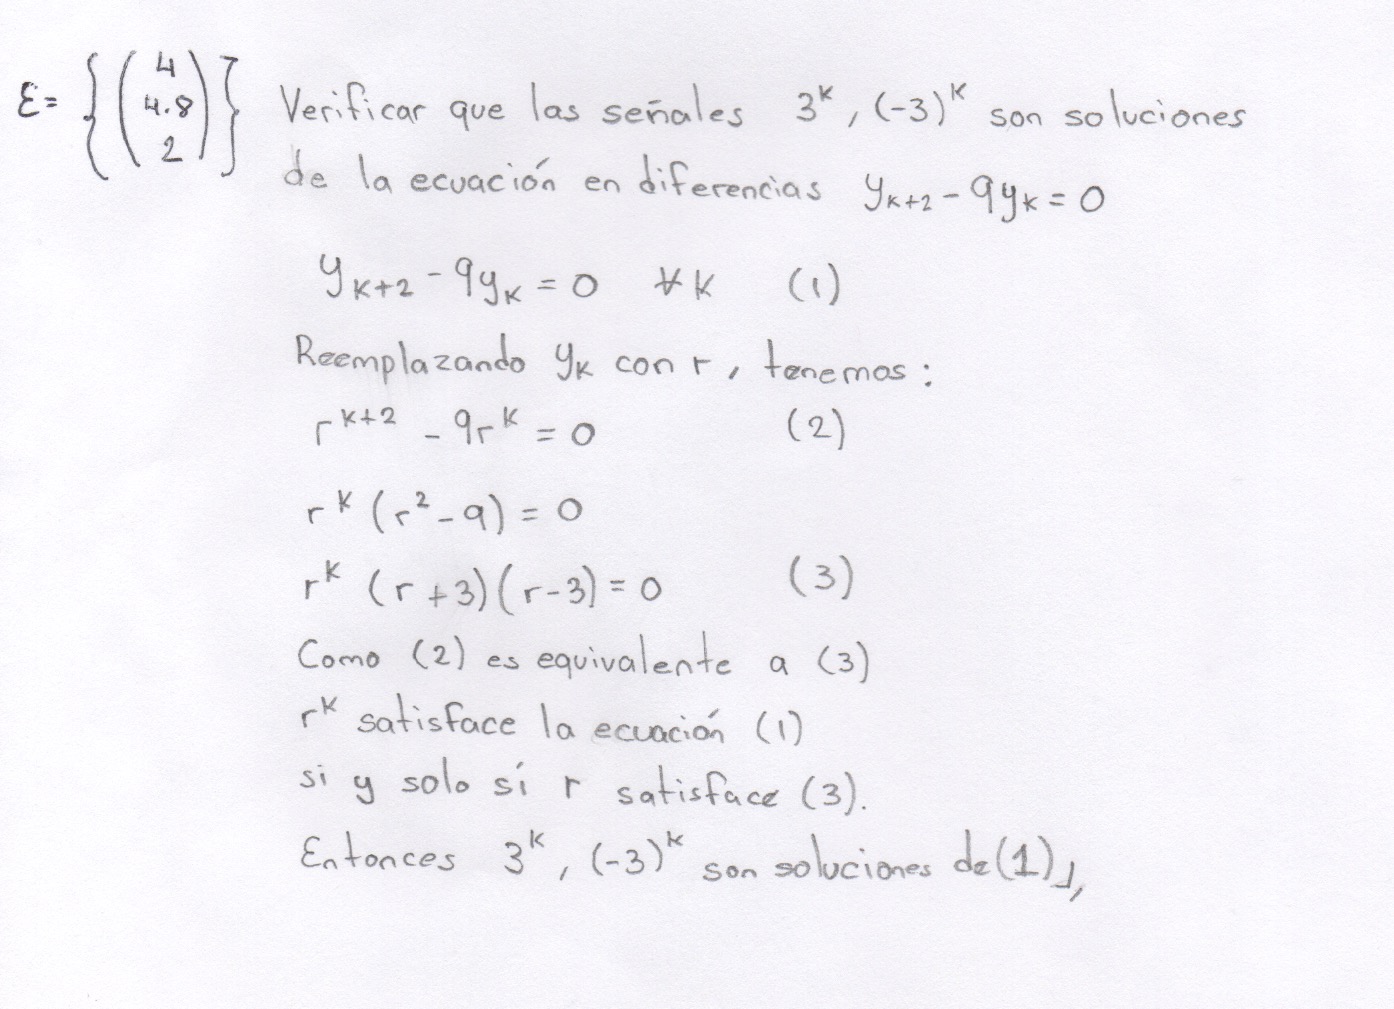 ε = { ( 4 4.8 2 ) } Verificar que las señales 3^k, (-3)^k son soluciones
de la ecuación en diferencias y_{k+2} - 9y_k = 0
y_{k+2} - 9y_k = 0 ∀k (1)
Reemplazando y_k con r, tenemos:
r^{k+2} - 9r^k = 0 (2)
r^k (r^2 - 9) = 0
r^k (r+3)(r-3) = 0 (3)
Como (2) es equivalente a (3)
r^k satisface la ecuación (1)
si y solo sí r satisface (3).
Entonces 3^k, (-3)^k son soluciones de (1)